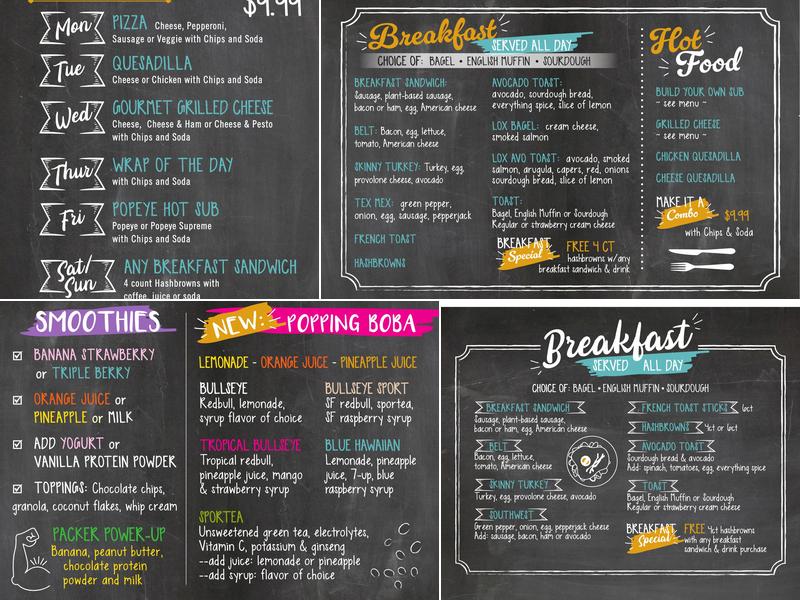 $9.99
Mon PIZZA Cheese, Pepperoni,
Sausage or Veggie with Chips and Soda
Tue QUESADILLA
Cheese or Chicken with Chips and Soda
Wed GOURMET GRILLED CHEESE
Cheese, Cheese & Ham or Cheese & Pesto
with Chips and Soda
Thur WRAP OF THE DAY
with Chips and Soda
Fri POPEYE HOT SUB
Popeye or Popeye Supreme
with Chips and Soda
Sat/Sun ANY BREAKFAST SANDWICH
4 count Hashbrowns with
coffee, juice or soda
Breakfast
SERVED ALL DAY
CHOICE OF: BAGEL • ENGLISH MUFFIN • SOURDOUGH
BREAKFAST SANDWICH:
Sausage, plant-based sausage,
bacon or ham, egg, American cheese
BELT: Bacon, egg, lettuce,
tomato, American cheese
SKINNY TURKEY: Turkey, egg,
provolone cheese, avocado
TEX MEX: green pepper,
onion, egg, sausage, pepperjack
FRENCH TOAST
HASHBROWNS
AVOCADO TOAST:
avocado, sourdough bread,
everything spice, slice of lemon
LOX BAGEL: cream cheese,
smoked salmon
LOX AVO TOAST: avocado, smoked
salmon, arugula, capers, red, onions
sourdough bread, slice of lemon
TOAST:
Bagel, English Muffin or Sourdough
Regular or strawberry cream cheese
BREAKFAST
Special
FREE 4 CT
hashbrowns w/any
breakfast sandwich & drink
Hot
Food
BUILD YOUR OWN SUB
~ see menu ~
GRILLED CHEESE
~ see menu ~
CHICKEN QUESADILLA
CHEESE QUESADILLA
MAKE IT A
Combo $9.99
with Chips & Soda
SMOOTHIES
BANANA STRAWBERRY
or TRIPLE BERRY
ORANGE JUICE or
PINEAPPLE or MILK
ADD YOGURT or
VANILLA PROTEIN POWDER
TOPPINGS: Chocolate chips,
granola, coconut flakes, whip cream
PACKER POWER-UP
Banana, peanut butter,
chocolate protein
powder and milk
NEW: POPPING BOBA
LEMONADE - ORANGE JUICE - PINEAPPLE JUICE
BULLSEYE
Redbull, lemonade,
syrup flavor of choice
BULLSEYE SPORT
SF redbull, sportea,
SF raspberry syrup
TROPICAL BULLSEYE
Tropical redbull,
pineapple juice, mango
& strawberry syrup
BLUE HAWAIIAN
Lemonade, pineapple
juice, 7-up, blue
raspberry syrup
SPORTEA
Unsweetened green tea, electrolytes,
Vitamin C, potassium & ginseng
--add juice: lemonade or pineapple
--add syrup: flavor of choice
Breakfast
SERVED ALL DAY
CHOICE OF: BAGEL • ENGLISH MUFFIN • SOURDOUGH
BREAKFAST SANDWICH
Sausage, plant-based sausage,
bacon or ham, egg, American cheese
BELT
Bacon, egg, lettuce,
tomato, American cheese
SKINNY TURKEY
Turkey, egg, provolone cheese, avocado
SOUTHWEST
Green pepper, onion, egg, pepperjack cheese
Add: sausage, bacon, ham or avocado
FRENCH TOAST STICKS 6ct
HASHBROWNS 4ct or 6ct
AVOCADO TOAST
Sourdough bread & avocado
Add: spinach, tomatoes, egg, everything spice
TOAST
Bagel, English Muffin or Sourdough
Regular or strawberry cream cheese
BREAKFAST
Special
FREE 4ct hashbrowns
with any breakfast
sandwich & drink purchase